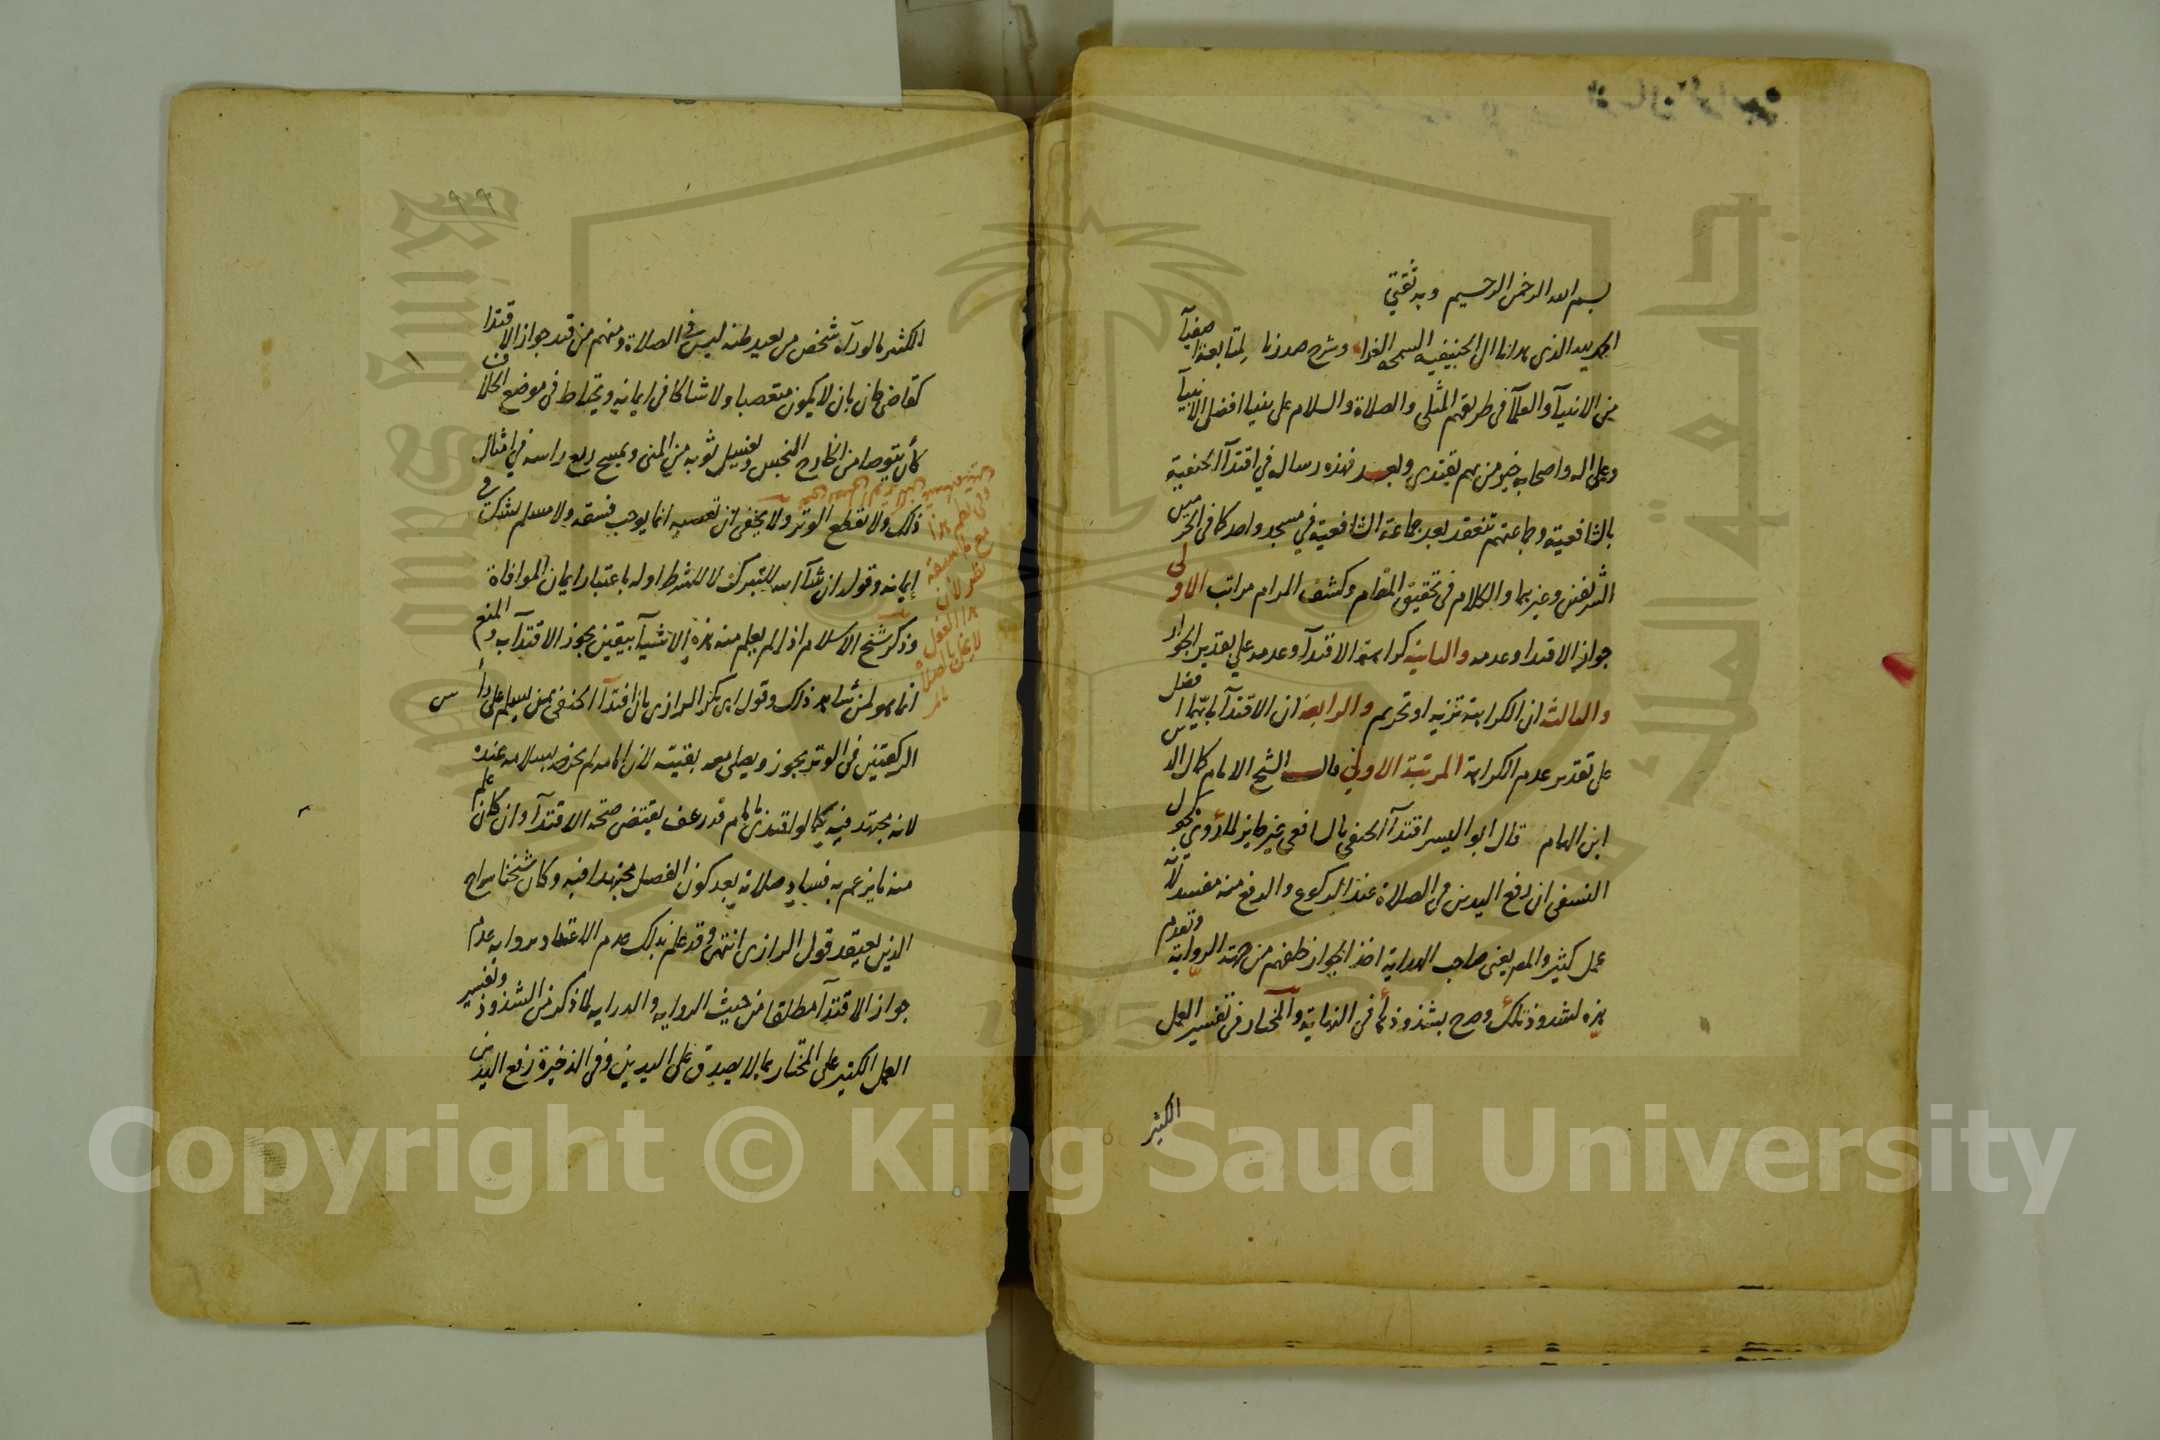 بسم الله الرحمن الرحيم وبه ثقتي
الحمد لله الذي هدانا الى الحنيفيه السمحه الغراء وشرح صدرنا لمتابعة اصفيآ
من الانبيآ والعلمآ في طريقهم المثلى والصلاة والسلام على نبينا افضل الانبيآ
وعلى اله واصحابه خير من بهم يقتدى وبعد فهذه رساله في اقتدآ الحنفية
بالشافعية وجماعتهم تنعقد بعد جماعة الشافعية في مسجد واحد كما في الحرمين
الشريفين وغيرهما والكلام في تحقيق المقام وكشف المرام مراتب الاولى
جواز الاقتدا وعدمه والثانية كراهة الاقتدآ وعدمه على تقدير الجواز
والثالث ان الكراهة تنزيه او تحريم والرابعة ان الاقتدآ بايهما افضل
على تقدير عدم الكراهة المرتبة الاولى قال الشيخ الامام كمال الدين
ابن الهمام قال ابو اليسر اقتدآ الحنفي بالشافعي غير جايز لما روى مكحول
النسفي ان رفع اليدين في الصلاة عند الركوع والرفع منه مفسد لانه
عمل كثير والمص يعني صاحب الهداية اخذ الجواز خلفهم من جهة الرواية وتقدم
هذه لشذوذ تلك وصرح بشذوذها في النهاية والمختار في تفسير العمل
الكثير
٩٩
الكثير ما لو رآه شخص من بعيد ظنه ليس في الصلاة ومنهم من قيد جواز الاقتدا
كقاضي خان بان لا يكون متعصبا ولا شاكا في ايمانه ويحتاط في موضع الخلاف
كأن يتوضا من الخارج النجس ويغسل ثوبه من المني ويمسح ربع راسه في امثال
ذلك ولا يقطع الوتر ولا يخفى ان تعصبه انما يوجب فسقه ولا مسلم يشك في
ايمانه وقوله ان شآ الله للتبرك لا للشرط اوله باعتبار ايمان الموافاة
وذكر شيخ الاسلام اذا لم يعلم منه هذه الاشيآ بيقين يجوز الاقتدآ به والمنع
انما هو لمن شاهد ذلك وقول ابي بكر الرازي بان اقتدآ الحنفي بمن يسلم على رأس
الركعتين في الوتر يجوز ويصلي معه بقيته لان امامه لم يخرج بسلامه عنده
لانه مجتهد فيه كما لو اقتدى بامام قد رعف يقتضي صحة الاقتدآ وان كان علم
منه ما يزعم به فساد صلاته بعد كون الفصل مجتهدا فيه وكان شيخنا سراج
الدين يعتقد قول الرازي انتهى وقد علم بذلك عدم الاعتماد برواية عدم
جواز الاقتدآ مطلقا من حيث الروايه والدرايه لما ذكر من الشذوذ وتفسير
العمل الكثير على المختار بما لا يصدق على اليدين وفي الذخيرة رفع اليدين
Copyright © King Saud University
King Saud University
جامعة الملك
1957